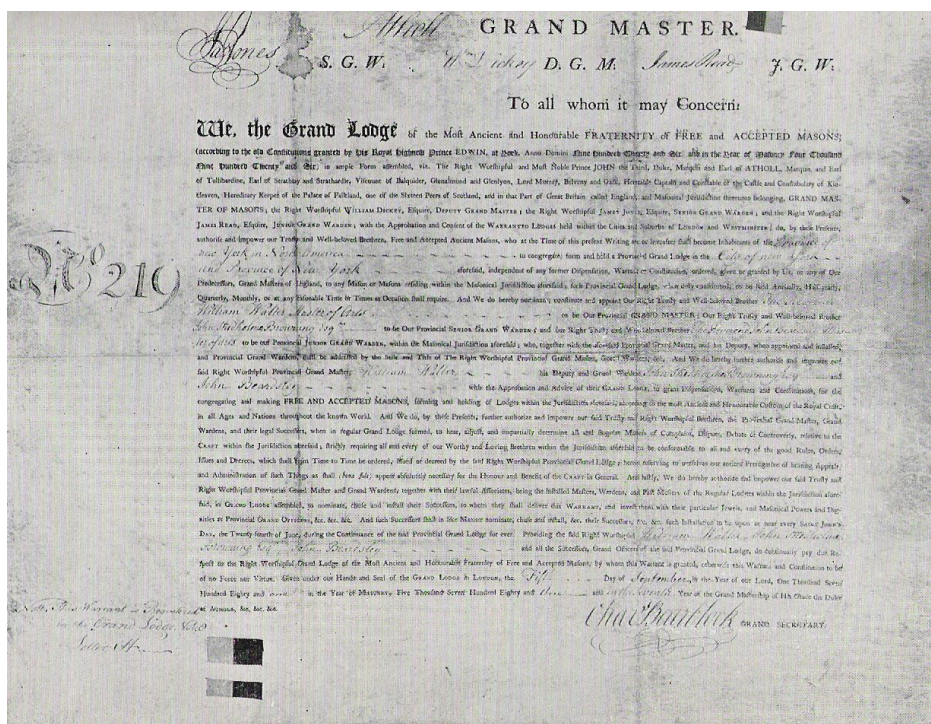 Atholl GRAND MASTER.
Ja. Jones S. G. W. Wm Dickey D. G. M. James Read J. G. W.
To all whom it may Concern:
We, the Grand Lodge of the Most Ancient and Honourable FRATERNITY of FREE and ACCEPTED MASONS;
(according to the old Constitutions granted by his Royal Highness Prince EDWIN, at York, Anno Domini Nine Hundred Twenty and Six, and in the Year of Masonry Four Thousand
Nine Hundred Twenty and Six) in ample Form assembled, viz. The Right Worshipful and Most Noble PRINCE JOHN the Third, Duke, Marquis and Earl of ATHOLL, Marquis, and Earl
of Tullibardine, Earl of Strathtay and Strathardle, Viscount of Balquider, Glenalmond and Glenlyon, Lord Murray, Belveny and Gask, Heretable Captain and Constable of the Castle and Constabulary of Kin-
Cleaven, Hereditary Keeper of the Palace of Falkland, one of the Sixteen Peers of Scotland, and in that Part of Great Britain called England, and Masonical Jurisdiction thereunto belonging, GRAND MAS-
TER OF MASONS; the Right Worshipful WILLIAM DICKEY, Esquire, DEPUTY GRAND MASTER; the Right Worshipful JAMES JONES, Esquire, SENIOR GRAND WARDEN; and the Right Worshipful
JAMES READ, Esquire, JUNIOR GRAND WARDEN; with the Approbation and Consent of the WARRANTED LODGES held within the Cities and Suburbs of LONDON and WESTMINSTER; do, by these Presents,
authorise and impower our Trusty and Well-beloved Brethren, Free and Accepted Ancient Masons, who at the Time of this present Writing are or hereafter shall become Inhabitants of the Province of
New York in North America to congregate, form and hold a Provincial Grand Lodge in the City of New York
No 219
and Province of New York aforesaid, independent of any former Dispensation, Warrant or Constitution, ordered, given or granted by Us, or any of Our
Predecessors, Grand Masters of England, to any Mason or Masons residing within the Masonical Jurisdiction aforesaid; such Provincial Grand Lodge, when duly constituted, to be held Annually, Half-yearly,
Quarterly, Monthly, or at any seasonable Time or Times as Occasion shall require. And We do hereby nominate, constitute and appoint Our Right Trusty and Well-beloved Brother The Reverend
William Walter Master of Arts to be Our Provincial GRAND MASTER; Our Right Trusty and Well-beloved Brother
John Stedholme Browning Esqr to be Our Provincial SENIOR GRAND WARDEN; and our Right Trusty and Well-beloved Brother The Reverend John Beardsley Mas-
ter of arts to be our Provincial JUNIOR GRAND WARDEN, within the Masonical Jurisdiction aforesaid; who, together with the aforesaid Provincial Grand Master, and his Deputy, when approved and installed,
and Provincial Grand Wardens, shall be addressed by the Stile and Title of The Right Worshipful Provincial Grand Master, Grand Wardens, &c. And We do hereby further authorise and impower our
said Right Worshipful Provincial Grand Master, William Walter his Deputy and Grand Wardens John Stedholme Browning Esq and
John Beardsley with the Approbation and Advice of their GRAND LODGE, to grant Dispensations, Warrants and Constitutions, for the
congregating and making FREE AND ACCEPTED MASONS, forming and holding of Lodges within the Jurisdiction aforesaid, according to the most Ancient and Honourable Custom of the Royal Craft,
in all Ages and Nations throughout the known World. And We do, by these Presents, further authorise and impower our said Trusty and Right Worshipful Brethren, the Provincial Grand Master, Grand
Wardens, and their legal Successors, when in regular Grand Lodge formed, to hear, adjust, and impartially determine all and singular Matters of Complaint, Dispute, Debate or Controversy, relative to the
CRAFT within the Jurisdiction aforesaid; strictly requiring all and every of our Worthy and Loving Brethren within the Jurisdiction aforesaid to be conformable to all and every of the good Rules, Orders,
Issues and Decrees, which shall from Time to Time be ordered, issued or decreed by the said Right Worshipful Provincial Grand Lodge; herein reserving to ourselves our ancient Prerogative of hearing Appeals,
and Administration of such Things as shall (bona fide) appear absolutely necessary for the Honour and Benefit of the CRAFT in General. And lastly, We do hereby authorise and impower our said Trusty and
Right Worshipful Provincial Grand Master and Grand Wardens, together with their lawful Associates, being the installed Masters, Wardens, and Past Masters of the Regular Lodges within the Jurisdiction afore-
said, in GRAND LODGE assembled, to nominate, chuse and install their Successors, to whom they shall deliver this WARRANT, and invest them with their particular Jewels, and Masonical Powers and Dig-
nities as Provincial GRAND OFFICERS, &c. &c. &c. And such Successors shall in like Manner nominate, chuse and install, &c. their Successors, &c. &c. such Installation to be upon or near every SAINT JOHN'S
DAY, the Twenty-fourth of June, during the Continuance of the said Provincial Grand Lodge for ever. Providing the said Right Worshipful William Walter, John Stedholme
Browning Esq John Beardsley and all the Successors, Grand Officers of the said Provincial Grand Lodge, do continually pay due Re-
spect to the Right Worshipful Grand Lodge of the Most Ancient and Honourable Fraternity of Free and Accepted Masons, by whom this Warrant is granted, otherwise this Warrant and Constitution to be
of no Force nor Virtue. Given under our Hands and Seal of the GRAND LODGE in LONDON, the Fifth Day of September, in the Year of our Lord, One Thousand Seven
Hundred Eighty and one in the Year of MASONRY, Five Thousand Seven Hundred Eighty and one and in the Seventh Year of the Grand Mastership of His Grace the Duke
of ATHOLL, &c. &c. &c.
Note, This Warrant is Registered
in the Grand Lodge, Vol. 8
Letter H.
GRAND SECRETARY.